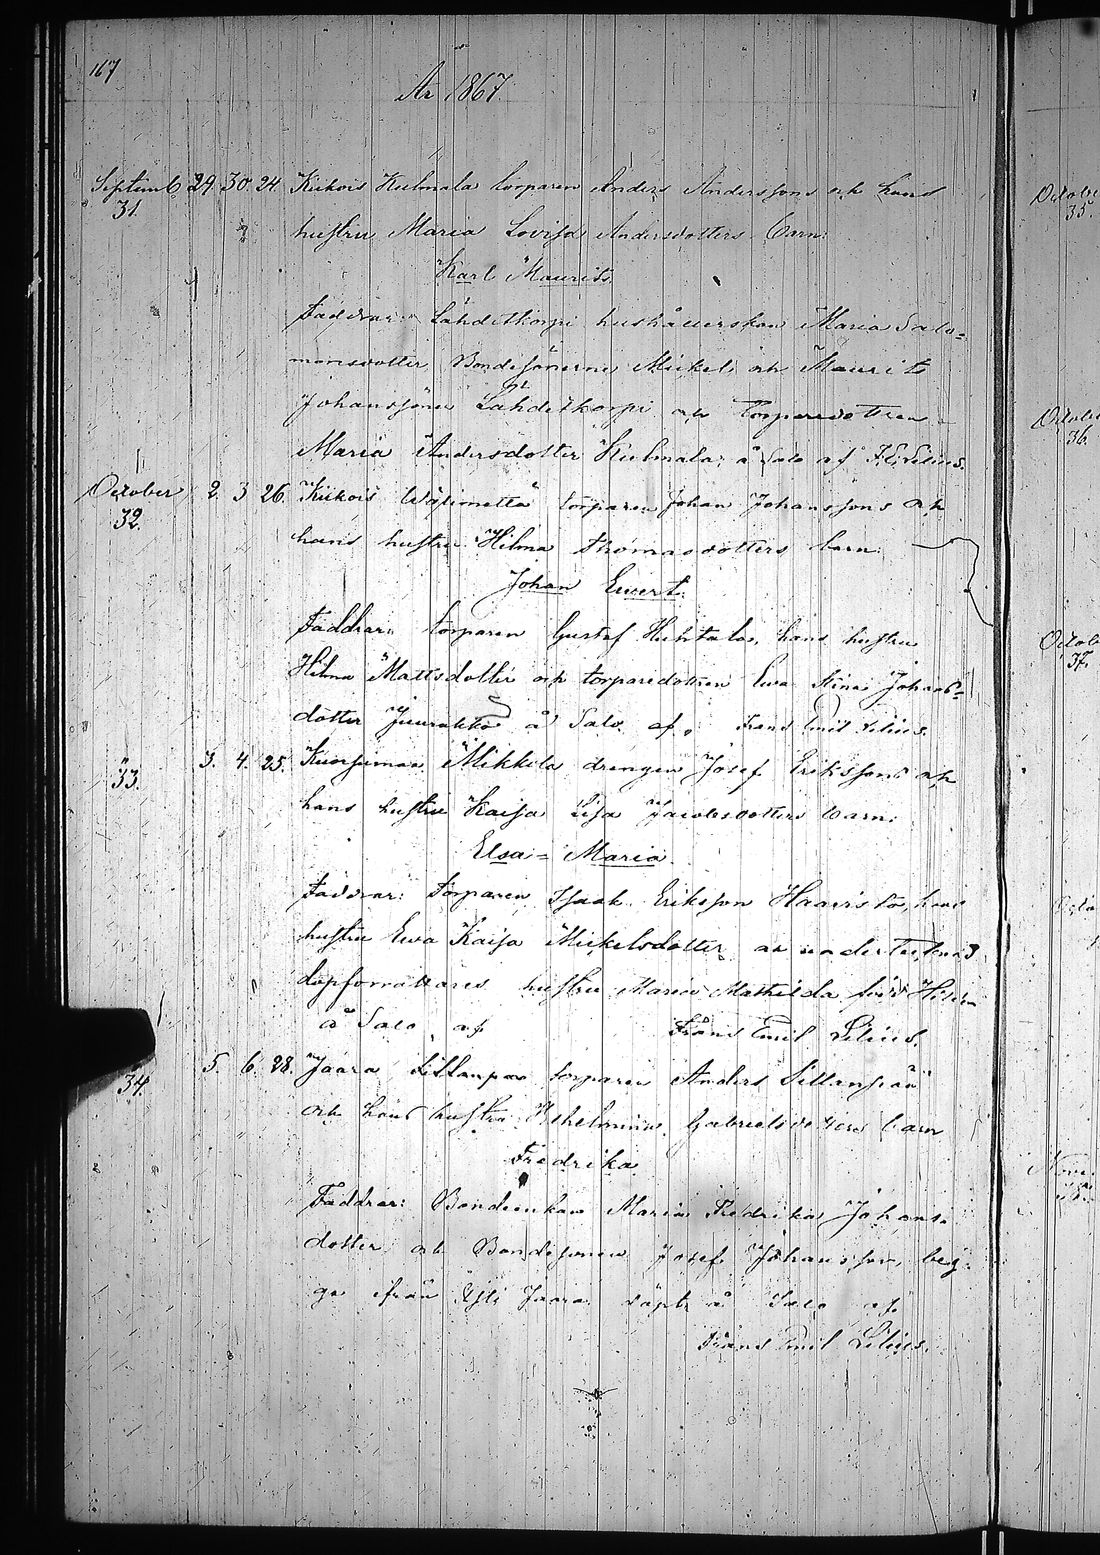 167
År 1867.
Septemb. 29. 30. 24. Kiikois Kulmala torparen Anders Anderssons och hans
31.
hustru Maria Lovisa Andersdotters barn:
Karl Maurits.
Faddrar: Lähdekorpi hushållerskan Maria Salo=
monsdotter, Bondesönerne Mickel och Maurits
Johanssöner Lähdekorpi och torparedottren
Maria Andersdotter Kulmala, å Salo af F. E. Lilius.
October 2. 3. 26. Kiikois torparen Johan Johanssons och
32.
hans hustru Hilma Thomasdotters barn:
Johan Ewert.
Faddrar: torparen Gustaf Huhtala, hans hustru
Hilma Mattsdotter och torparedottren Ewa Stina Johans=
dotter Juurakko å Salo af, Frans Emil Lilius.
3. 4. 25. Kuorsumaa Mikkola drengen Josef Erikssons och
" 33.
hans hustru Kaisa Lisa Jacobsdotters barn:
Elsa= Maria.
Faddrar: Torparen Isaak Eriksson Haavisto, hans
hustru Ewa Kaisa Mickelsdotter och undertecknad
dopförrättares hustru Maria Mathilda född
å Salo af Frans Emil Lilius.
5. 6. 28. Jaara Sillanpää torparen Anders Sillanpää
34.
och hans hustru Wilhelmina Gabrielsdotters barn
Fredrika.
Faddrar: Bondeenkan Maria Fredrika Johans=
dotter och Bondesonen Josef Johansson, beg=
ge ifrån Jaara döpt å Salo af
Frans Emil Lilius.
October
35.
October
36.
October
37.
Nove